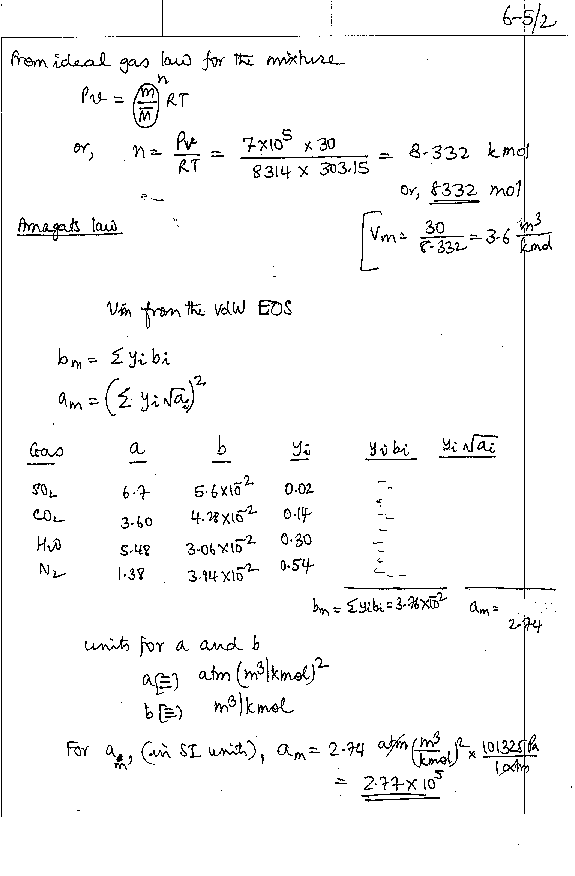 6-5/2
From ideal gas law for the mixture
Pv = (m/M̅) RT n
or, n = Pv/RT = 7×10⁵ × 30 / 8314 × 303.15 = 8.332 kmol
or, 8332 mol
Amagats law [Vm = 30/8.332 = 3.6 m³/kmol
Vm from the vdW EOS
bm = Σ yi bi
am = (Σ yi √ai)²
Gas a b yi yi bi yi √ai
SO₂ 6.7 5.6×10⁻² 0.02
CO₂ 3.60 4.28×10⁻² 0.14
H₂O 5.48 3.06×10⁻² 0.30
N₂ 1.38 3.94×10⁻² 0.54
bm = Σyibi = 3.76×10⁻² am = 2.74
units for a and b
a[≡] atm (m³/kmol)²
b[≡) m³/kmol
For am, (in SI units), am = 2.74 atm (m³/kmol)² × 101325 Pa / 1 atm
= 2.77 × 10⁵